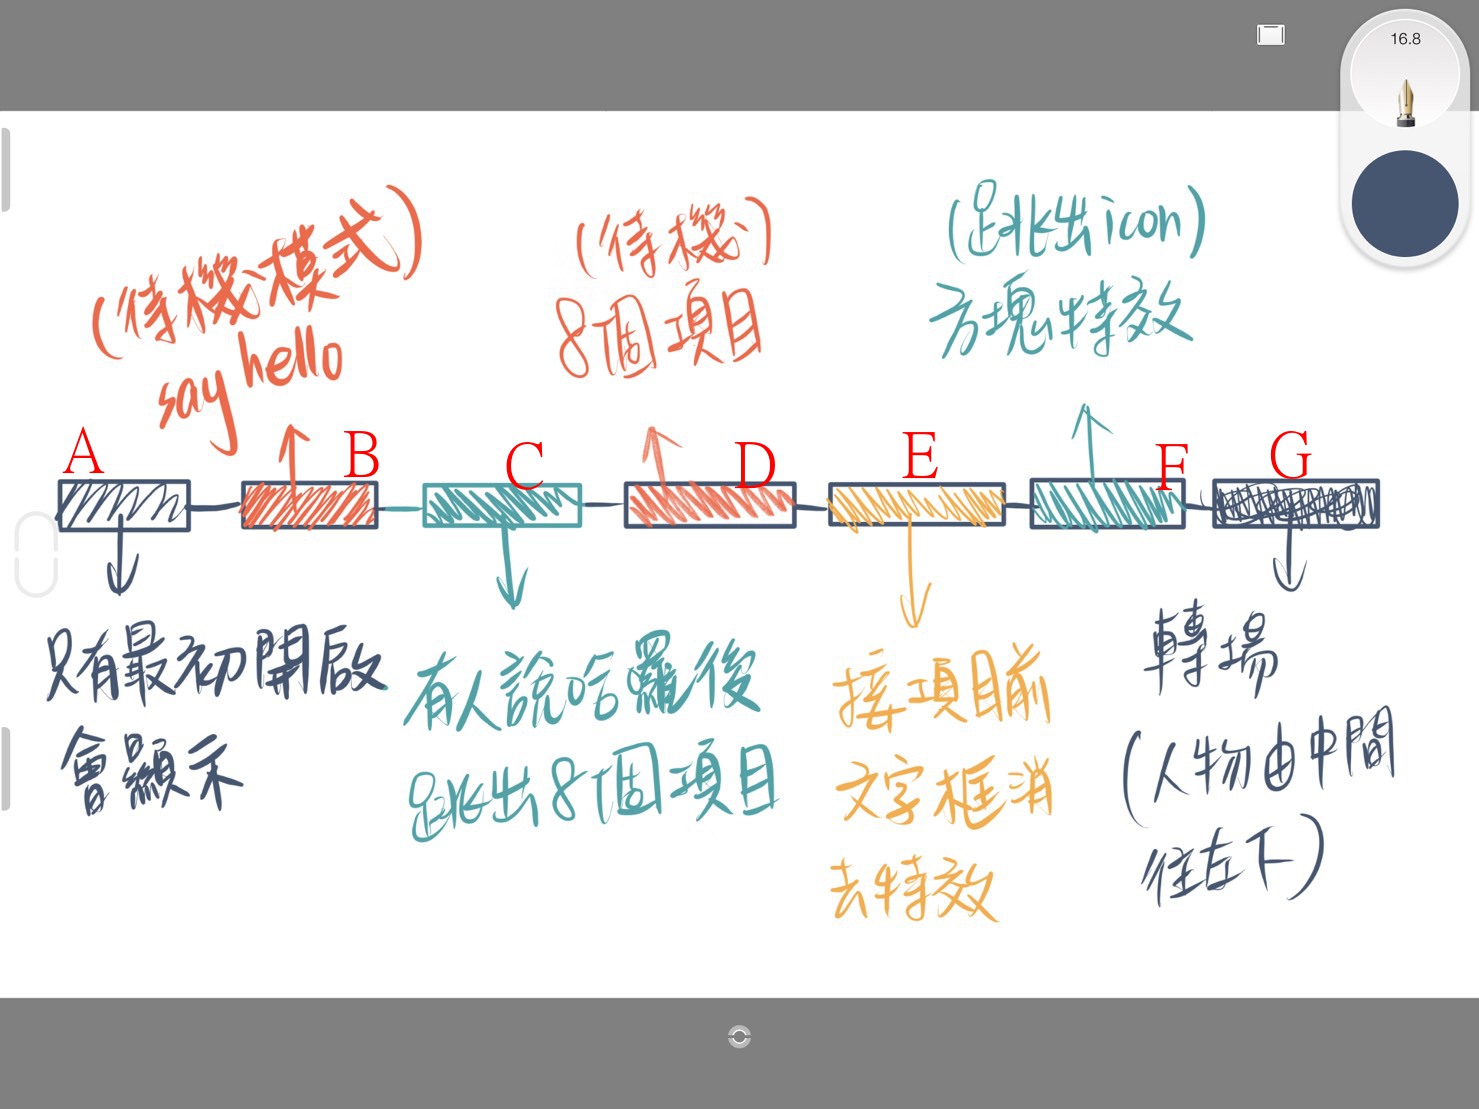 16.8
(待機模式)
say hello
(待機)
8個項目
(跳出icon)
方塊特效
A
B
C
D
E
F
G
只有最初開啟
會顯示
有人說哈羅後
跳出8個項目
接項目前
文字框消
去特效
轉場
(人物由中間
往左下)